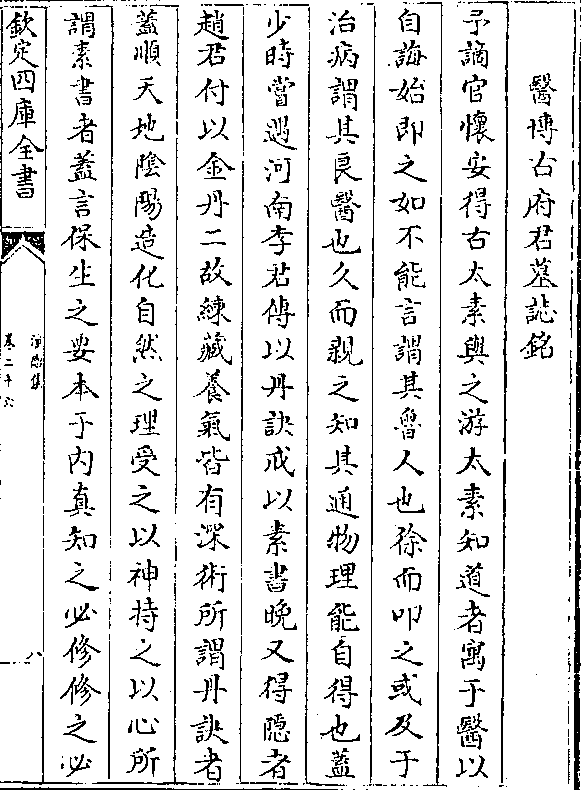 醫博古府君墓誌銘
予謫官懷安得古太素與之游太素知道者寓于醫以
自誨始即之如不能言謂其魯人也徐而叩之或及于
治病謂其良醫也久而親之知其通物理能自得也蓋
少時嘗遇河南李君傳以丹訣戒以素書晚又得隠者
趙君付以金丹二故練藏養氣皆有深術所謂丹訣者
蓋順天地陰陽造化自然之理受之以神持之以心所
謂素書者蓋言保生之要本于内真知之必修修之必
欽定四庫全書
卷二十六
八